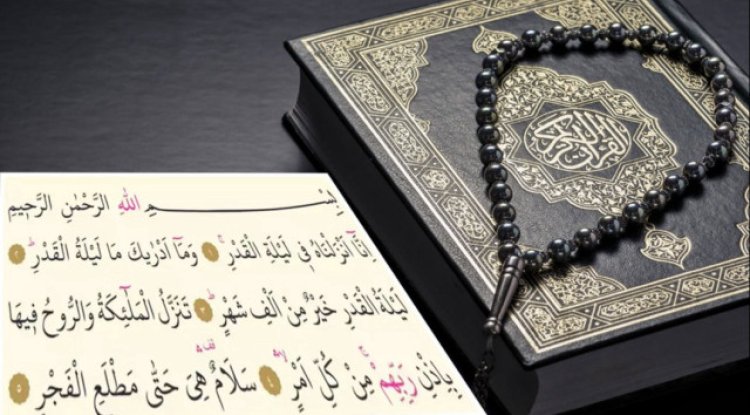 القرآن الكريم
بِسْمِ اللهِ الرَّحْمٰنِ الرَّحِيمِ
اِنَّٓا اَنْزَلْنَاهُ فِى لَيْلَةِ الْقَدْرِۚ ﴿١﴾ وَمَٓا اَدْرٰيكَ مَا لَيْلَةُ الْقَدْرِۜ ﴿٢﴾
لَيْلَةُ الْقَدْرِ خَيْرٌ مِنْ اَلْفِ شَهْرٍۜ ﴿٣﴾ تَنَزَّلُ الْمَلٰٓئِكَةُ وَالرُّوحُ فِيهَا
بِاِذْنِ رَبِّهِمْۚ مِنْ كُلِّ اَمْرٍۙۛ ﴿٤﴾ سَلَامٌ۠ۛ هِىَ حَتّٰى مَطْلَعِ الْفَجْرِ ﴿٥﴾